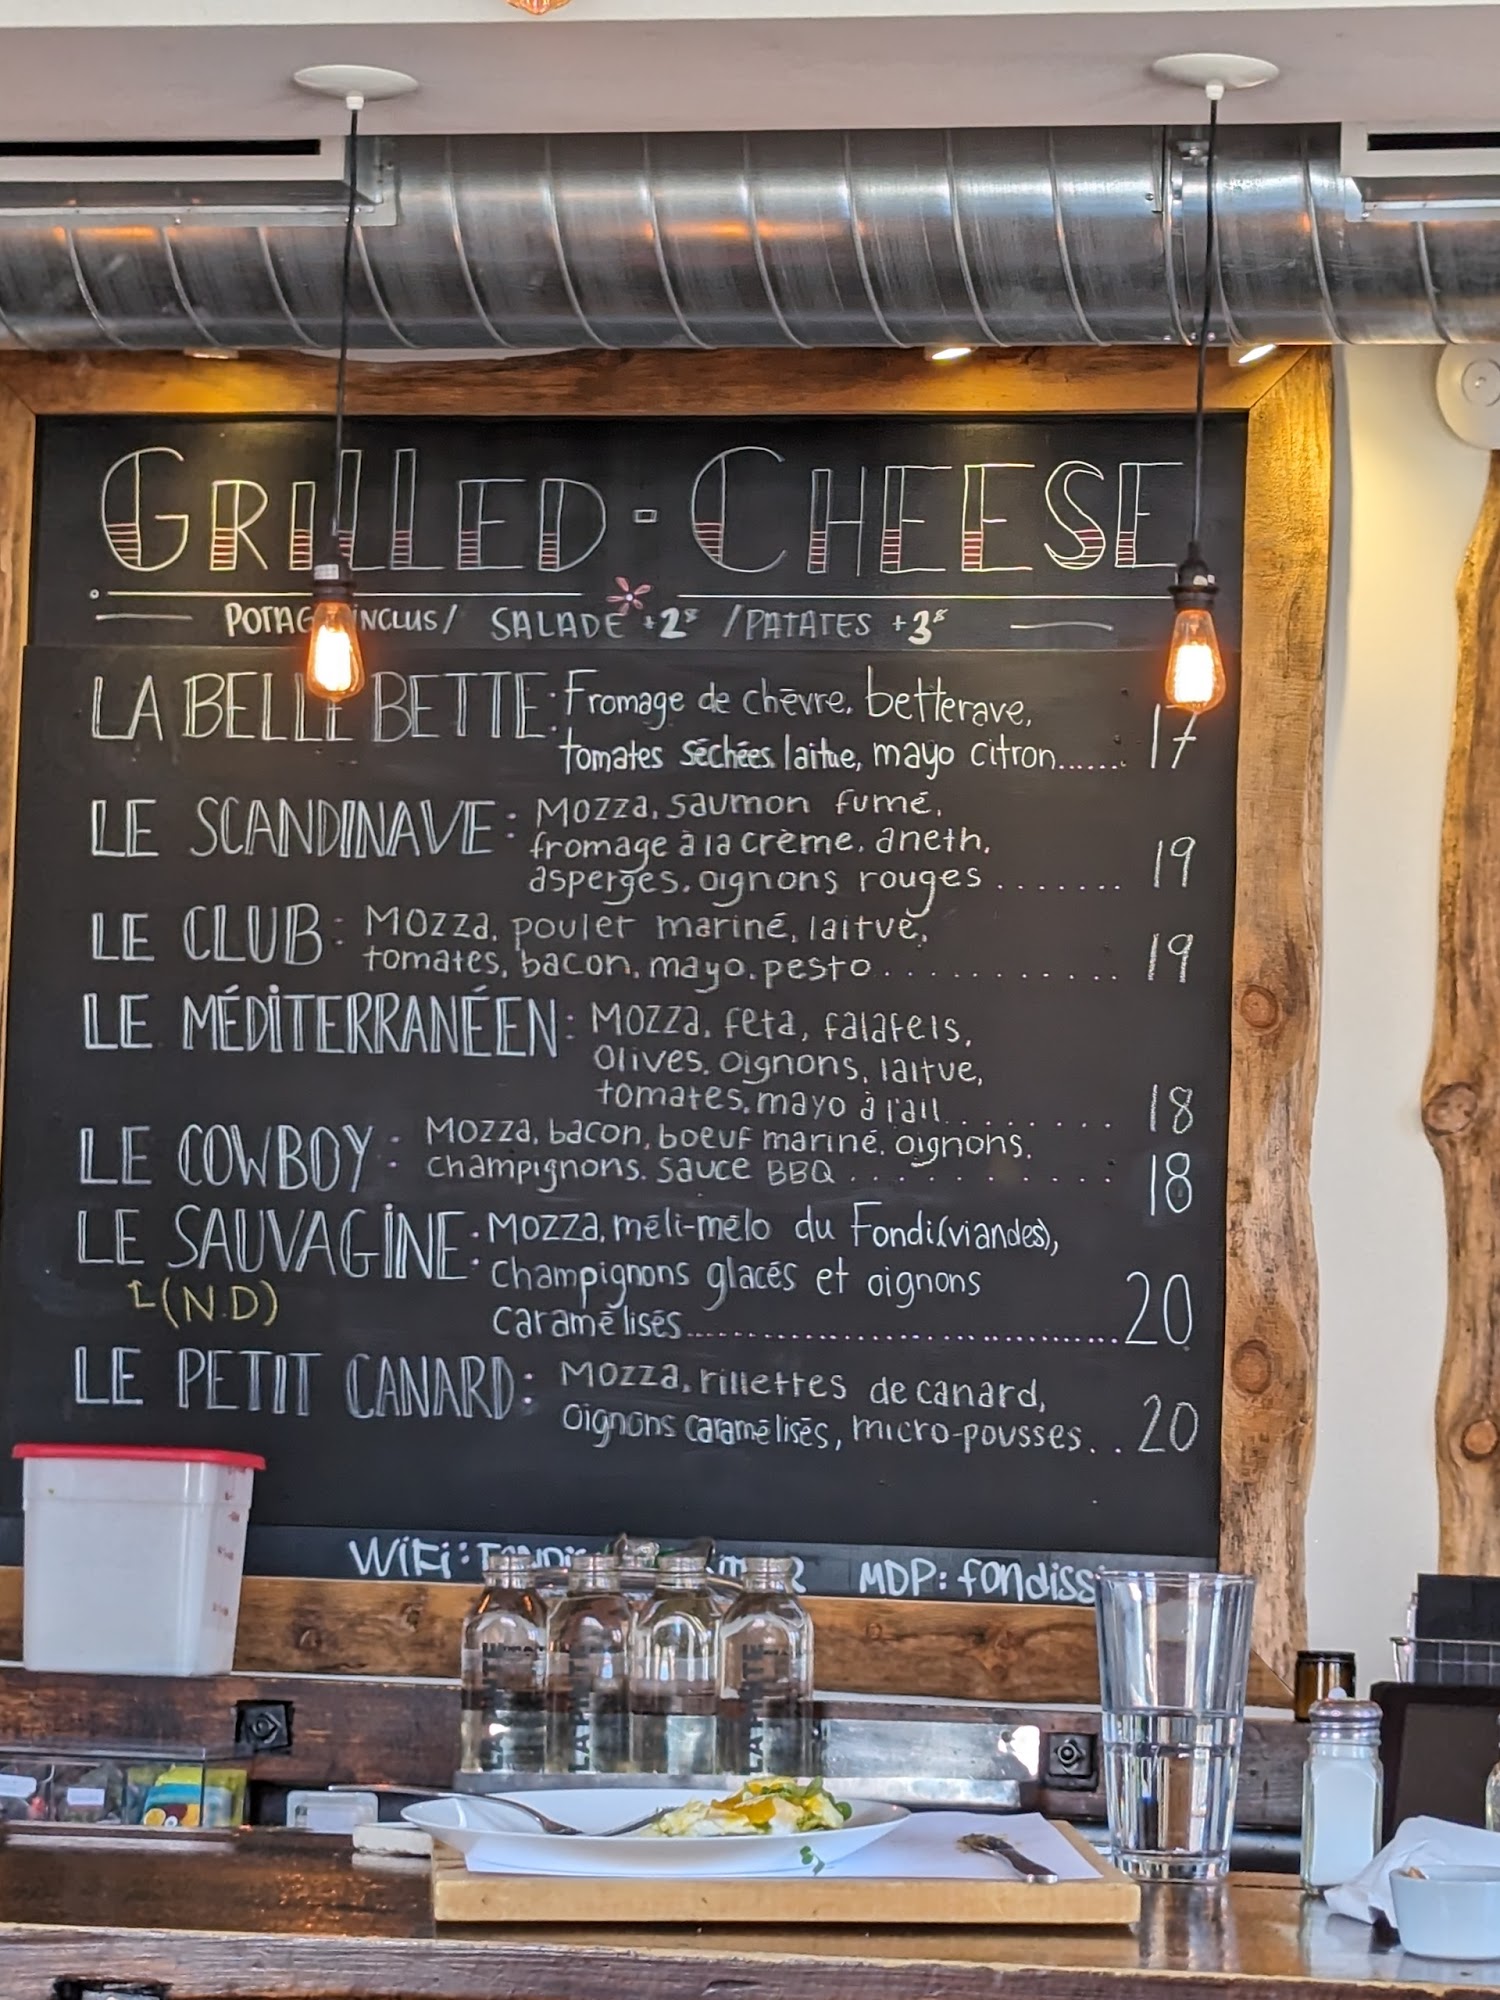 GRILLED-CHEESE
INCLUS/ SALADE +2$ /PATATES +3$
LA BELLE BETTE: Fromage de chèvre, betterave,
tomates séchées, laitue, mayo citron...... 17
LE SCANDINAVE: Mozza, saumon fumé,
fromage à la crème, aneth,
asperges, oignons rouges ....... 19
LE CLUB: Mozza, poulet mariné, laitue,
tomates, bacon, mayo, pesto ............ 19
LE MÉDITERRANÉEN: Mozza, feta, falafels,
olives, oignons, laitue,
tomates, mayo à l'ail ........ 18
LE COWBOY: Mozza, bacon, boeuf mariné, oignons,
champignons, sauce BBQ .......... 18
LE SAUVAGINE: Mozza, méli-mélo du Fondi(viandes),
(N.D) Champignons glacés et oignons
caramélisés.................................. 20
LE PETIT CANARD: Mozza, rillettes de canard,
oignons caramélisés, micro-pousses.. 20
WiFi: MDP: